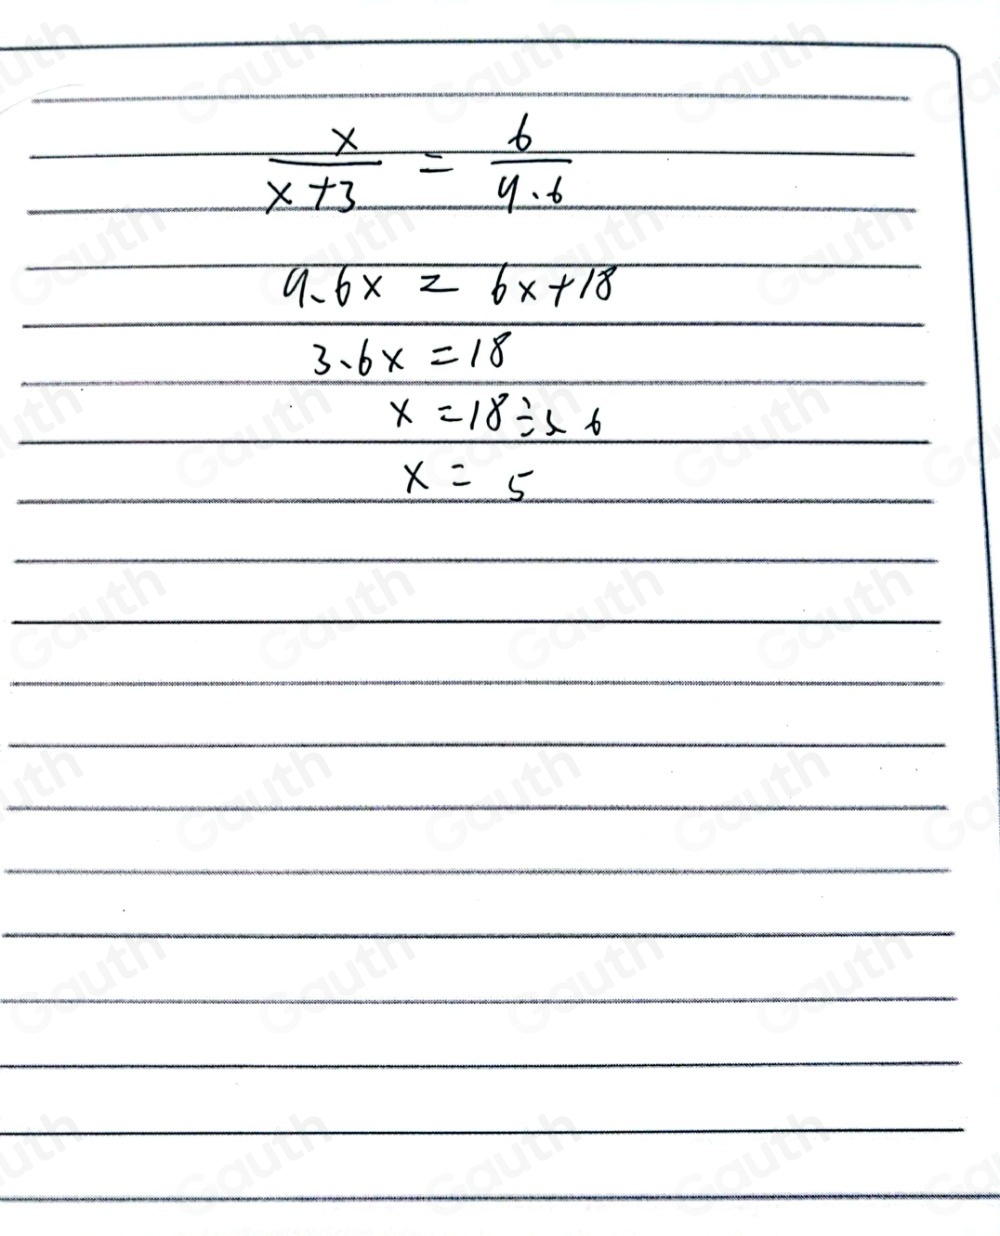 x/x+3 = 6/9.6
9.6x = 6x+18
3.6x = 18
x = 18÷3.6
x = 5